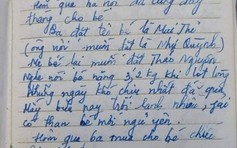 Hôm qua bà nội đã cúng đầy
tháng cho bé
Ba đặt tên bé là Mai Thi
(ông nội muốn đặt là Như Quỳnh)
Mẹ bé lại muốn đặt Thảo Nguyên
Nghe nói bé nặng 3,2 kg khi lọt lòng
Những ngày khó chịu nhất đã qua
Mấy bữa nay trời lạnh nhiều,
có than bé mới ngủ yên.
Hôm qua ba mua cho bé chiếc